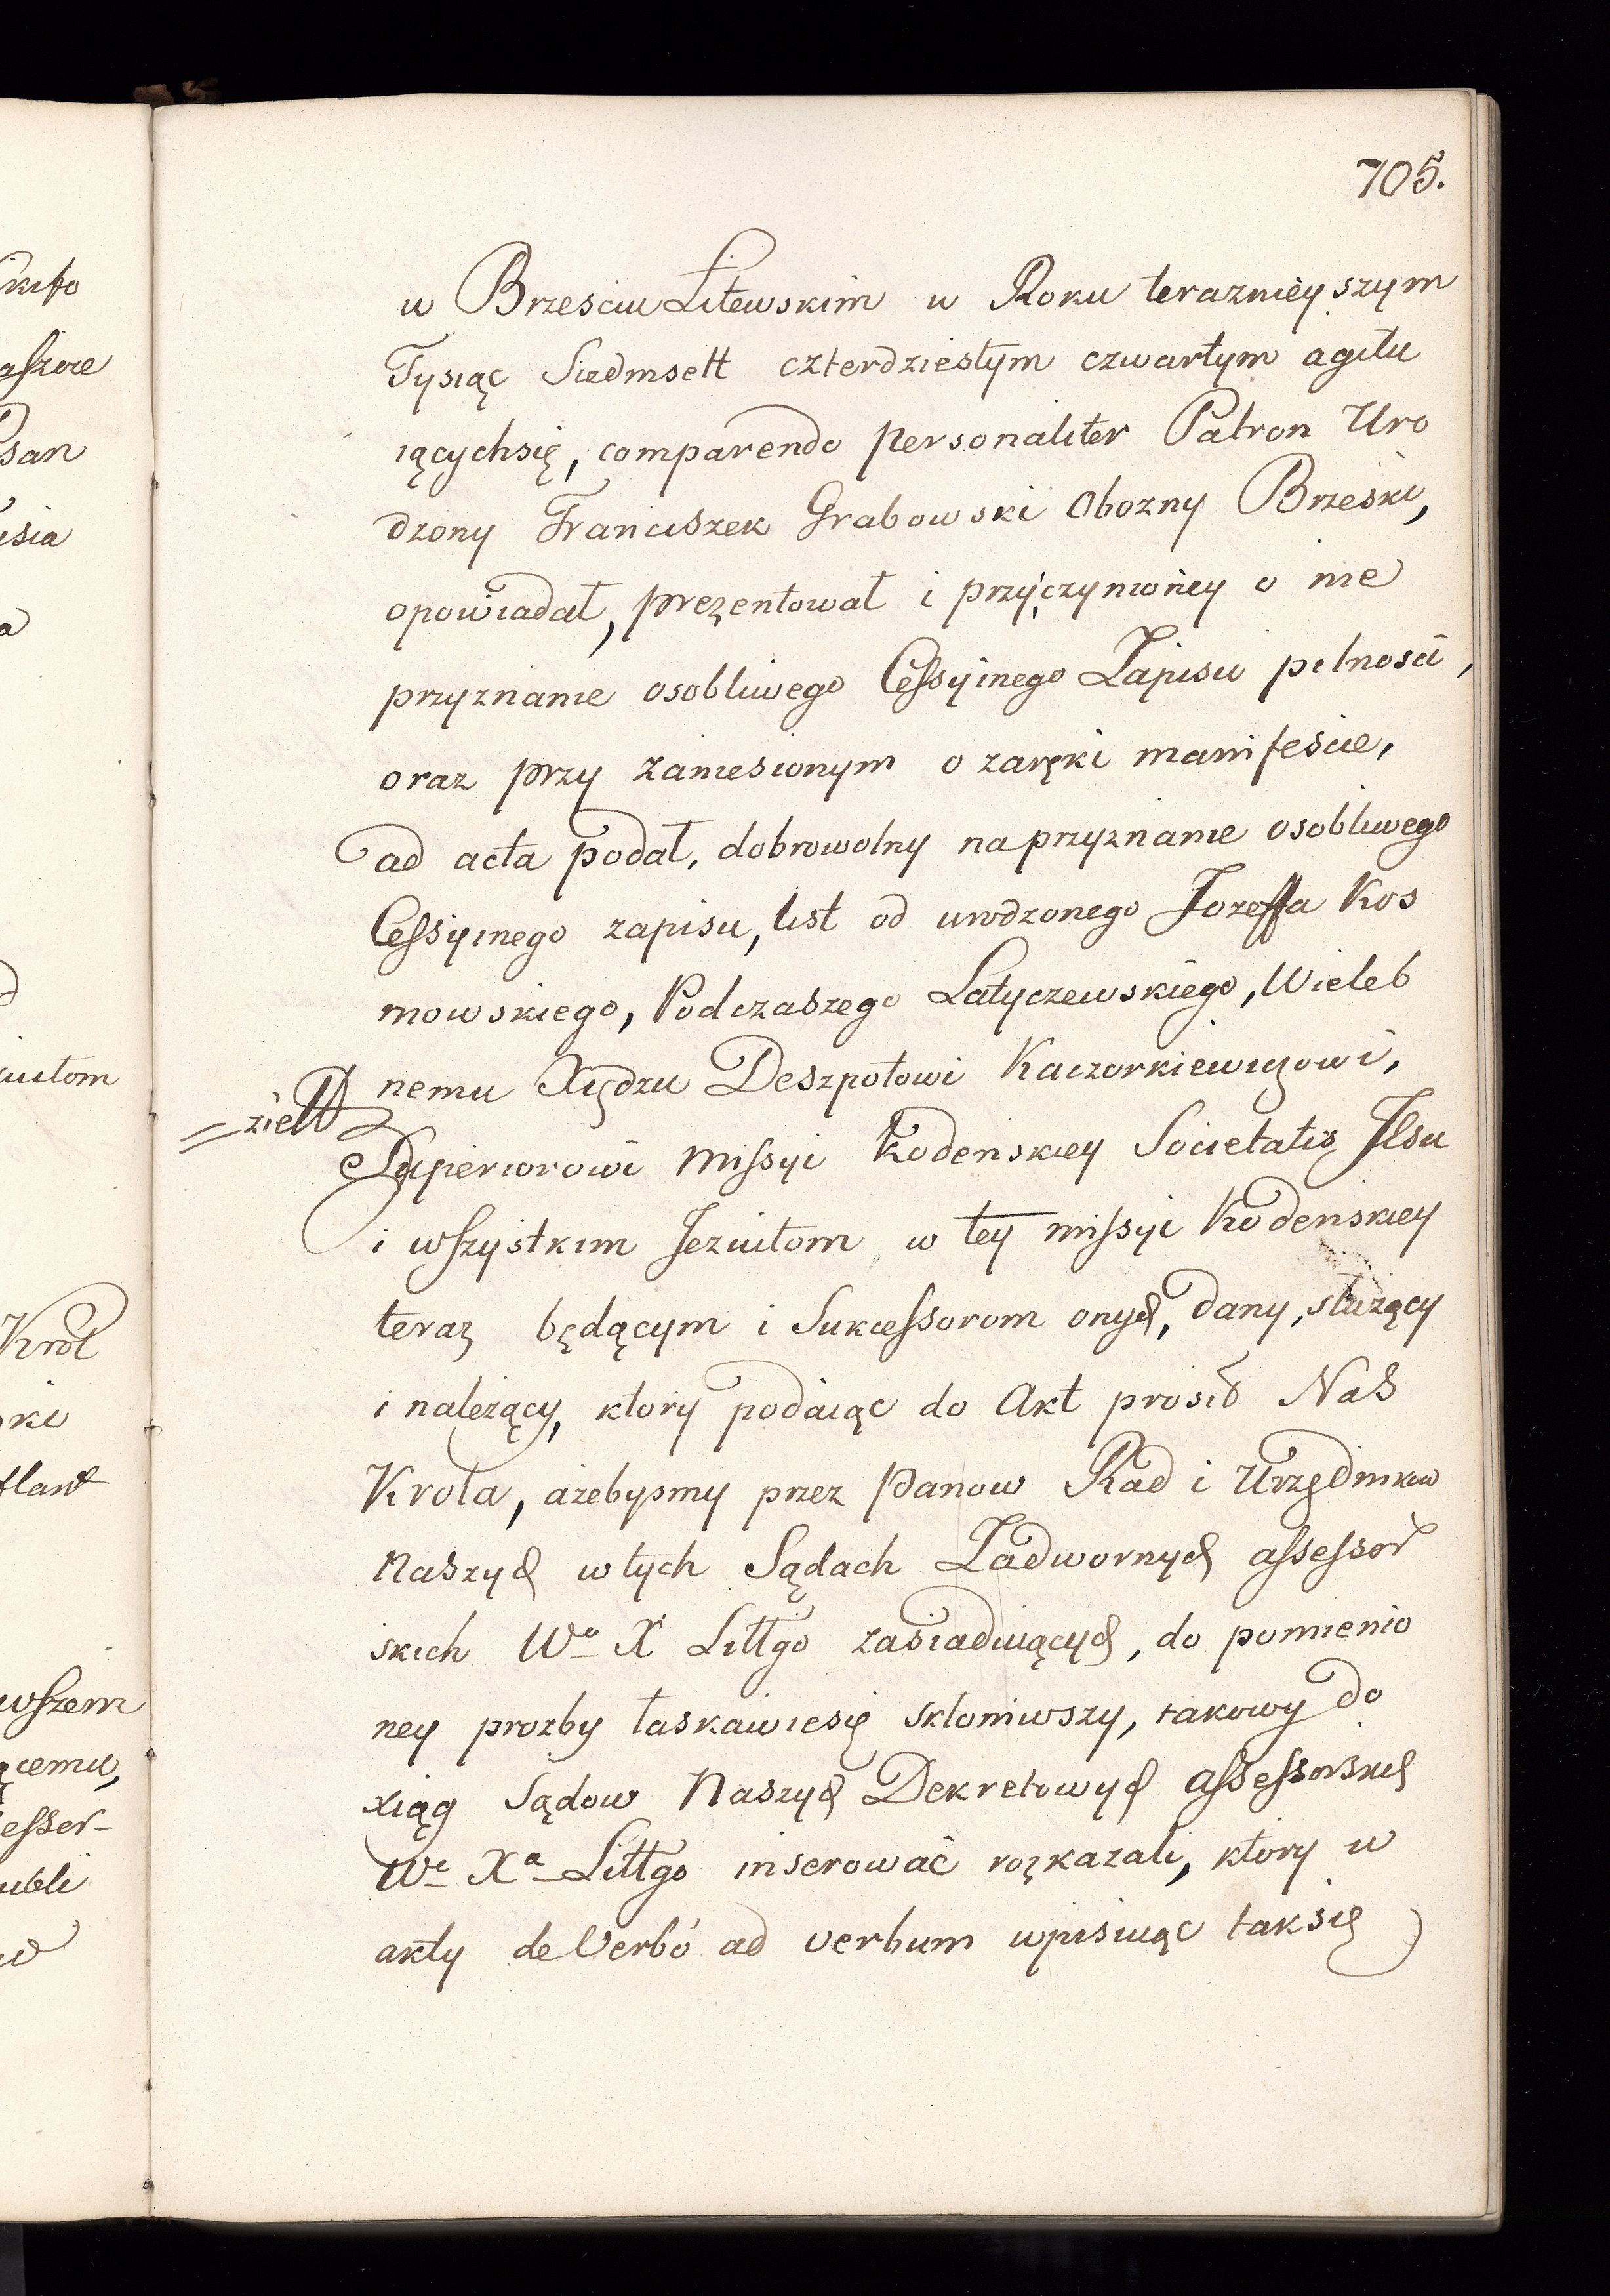 705.
w Brzesciu Litewskim w Roku teraznieyszym
Tysiąc Siedmsett czterdziestym czwartym agitu
iącychsię, comparendo personaliter Patron Uro
dzony Franciszek Grabowski Obozny Brzeski,
opowiadał, prezentował i przyczynioney o nie
przyznanie osobliwego Cessyinego Zapisu pilnosci,
oraz przy zaniesionym o zaręki manifescie,
ad acta podał, dobrowolny na przyznanie osobliwego
Cessyinego zapisu, list od urodzonego Jozeffa Kos
mowskiego, Podczaszego Latyczewskiego, Wieleb
nemu Xiędzu Deszpotowi Kaczorkiewiczowi,
Superiorowi missyi Kodenskiey Societatis JEsu
i wszystkim Jezuitom w tey missyi Kodenskiey
teraz będącym i Sukcessorom onych, dany, służący
i należący, ktory podaiąc do Akt prosił Nas
Krola, ażebysmy przez Panow Rad i Urzędnikow
Naszych w tych Sądach Zadwornych assessor
skich Wo X Littgo zasiaduiących, do pomienio
ney prozby łaskawiesię skłoniwszy, takowy do
xiąg Sądow Naszych Dekretowych assessorskich
We Xa Littgo inserować rozkazali, ktory w
akty de Verbo ad verbum wpisuiąc taksię